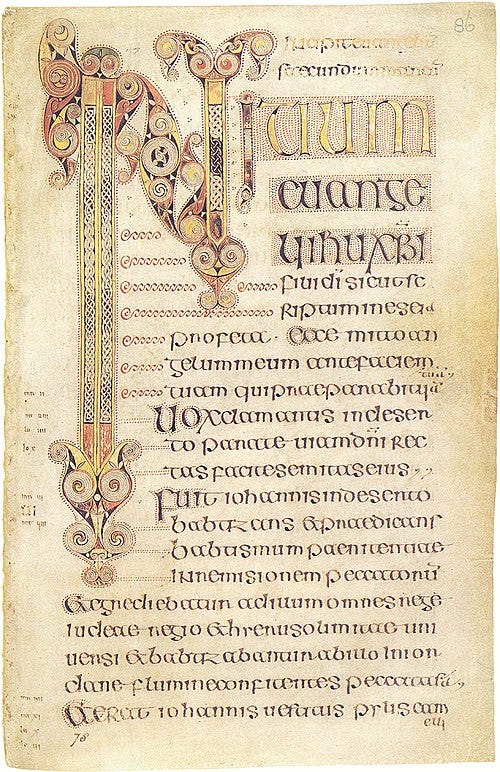 86
INITIUM
euange
lii ihu xpi
filii di sicut sc
riptum in eseia
profeta · ecce mitto an
gelum meum ante faciem
tuam qui praeparabit uiā
tuā
Uox clamantis in deser
to parate uiam dni rec
tas facite semitas eius
Fuit iohannis in deserto
babtizans & praedicans
babtismum paenitentiae
in remisionem peccatorū
& egrediebatur ad illum omnes
iudeae regio & hierusolimitae uni
uersi & babtizabantur ab illo in ior
dane flumine confitentes peccata sua
& erat iohannis uestitus pylis cam
elli
78